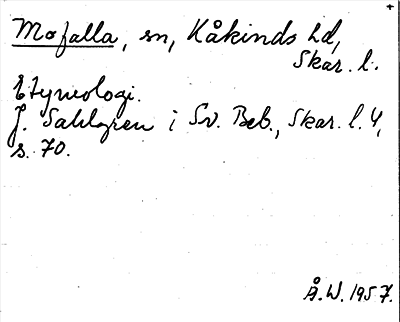 Mofalla, sn, Kåkinds hd,
Skar. l.
Etymologi.
J. Sahlgren i Sv. Beb., Skar. l. 4,
s. 70.
Å.W. 1957.